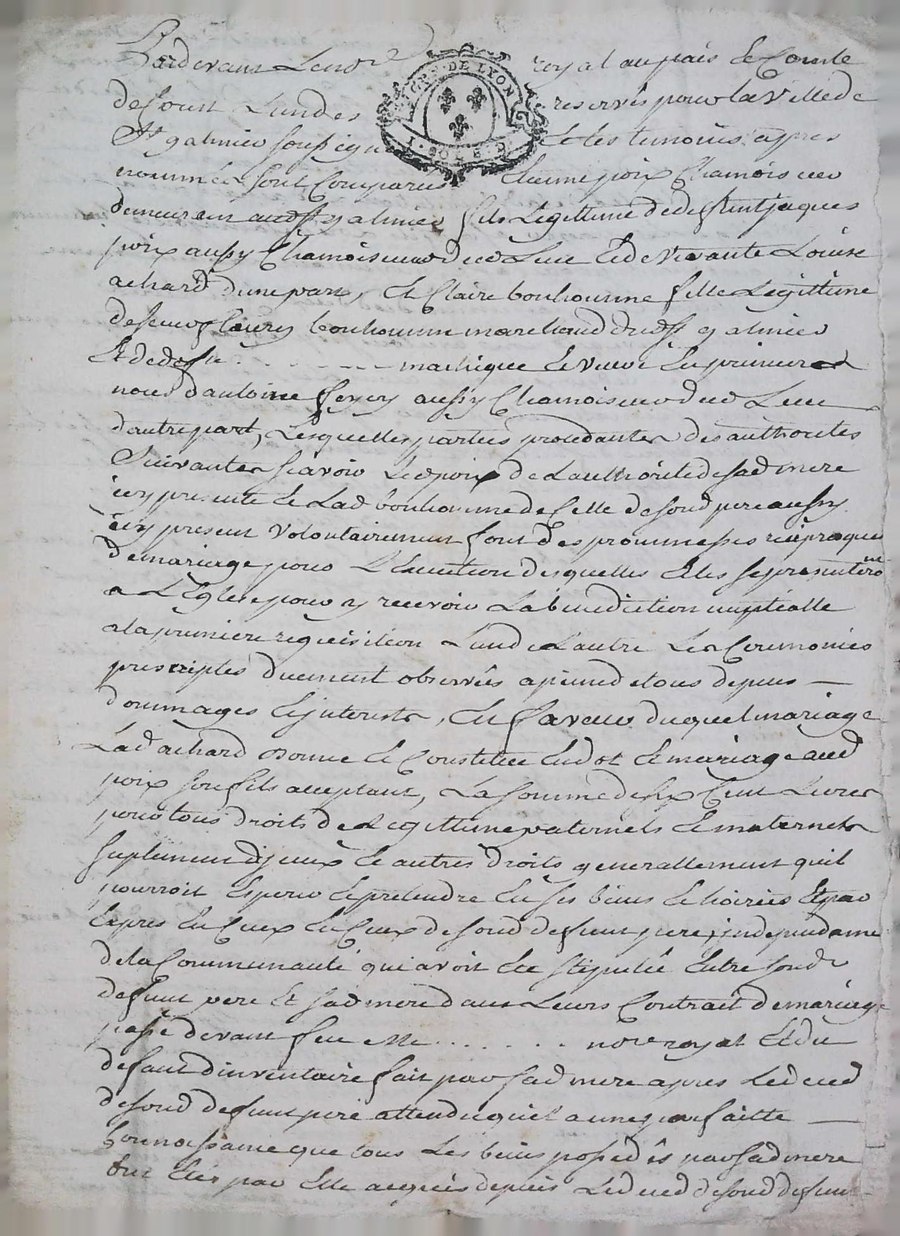 Pardevant Le no.re royal au païs Et Comté
GEN. DE LYON
deforest L'un des reservés pour la ville de
St galmier soussigné Et les temoins apres
I. SOL. 8 D.
nommés sont Comparus poix Chamoiseur
demeurant aud St galmier fils Legittime de deffunt jaques
poix aussy Chamoiseur dud Lieu Et de vivante Louise
achard d'une part, Et Claire bonhomme fille Legittime
de sieur fleury bonhomme marchand dud St galmier
Et de deffte . . . . . . matrique Et veuve En premiere
nous d'antoine ferry aussy Chamoiseur dud Lieu
d'autre part, Lesquelles parties procedantes des authorités
Suivantes scavoir Led poix de L'authorité de sad mere
icy presente Et Lad bonhomme de celle de sond pere aussy
icy present volontairement font des promesses reciproques
de mariage pour L'Execution desquelles Elles se presenteront
a L'Eglise pour y recevoir La benediction nuptialle
a la premiere requisition L'un de L'autre Les Ceremonies
prescriptes duement observées a peine de tous depens
dommages Et interests, En faveur duquel mariage
Lad achard donne Et Constitue En dot Et mariage aud
poix son fils acceptant, La somme de six Cent Livres
pour tous droits de Legittime paternels Et maternels
suplement d'iceux Et autres droits generallement qu'il
pourroit Esperer Et pretendre En ses biens Et hoiries Et par
Exprès En Ceux de sond deffunt pere, independament
de la Communauté qui avoit Eté stipulée Entre sond
defunt pere Et sad mere dans Leurs Contrait de mariage
passé devant feu Me . . . . . . . no.re royal Et du
defaut d'inventaire fait par sad mere apres Le deced
de sond defunt pere attendu qu'il a une parfaitte
Connoissance que tous Les biens possedés par sad mere
ont Etés par Elle acquis depuis Le deced de sond defunt